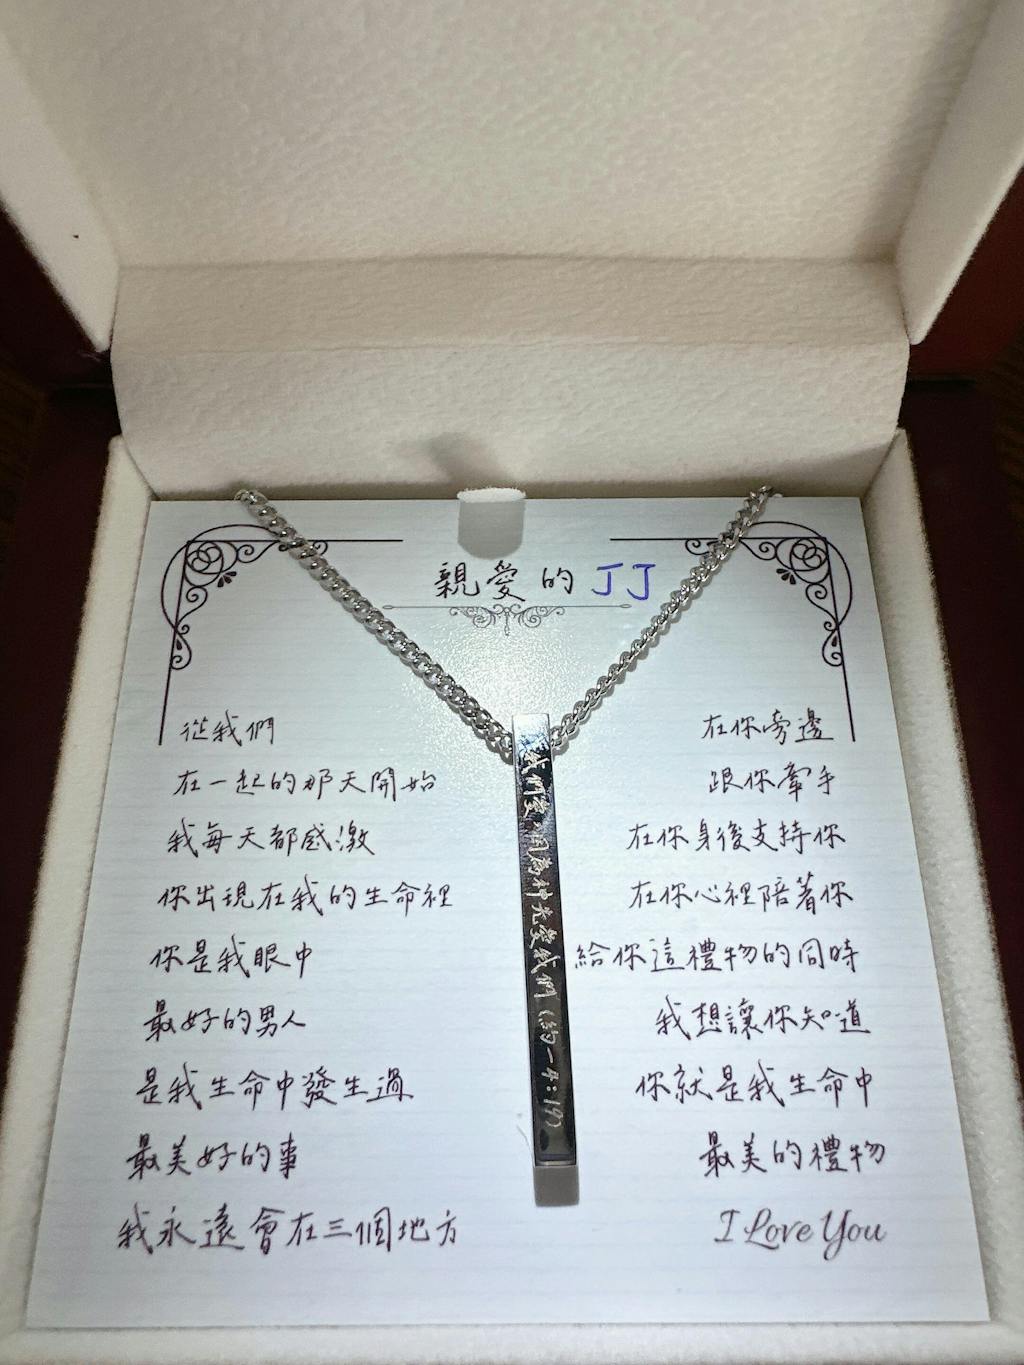 親愛的 JJ
從我們
在一起的那天開始
我每天都感激
你出現在我的生命裡
你是我眼中
最好的男人
是我生命中發生過
最美好的事
我永遠會在三個地方
在你旁邊
跟你牽手
在你身後支持你
在你心裡陪著你
給你這禮物的同時
我想讓你知道
你就是我生命中
最美的禮物
I Love You
我們愛因為神先愛我們(約一4:19)